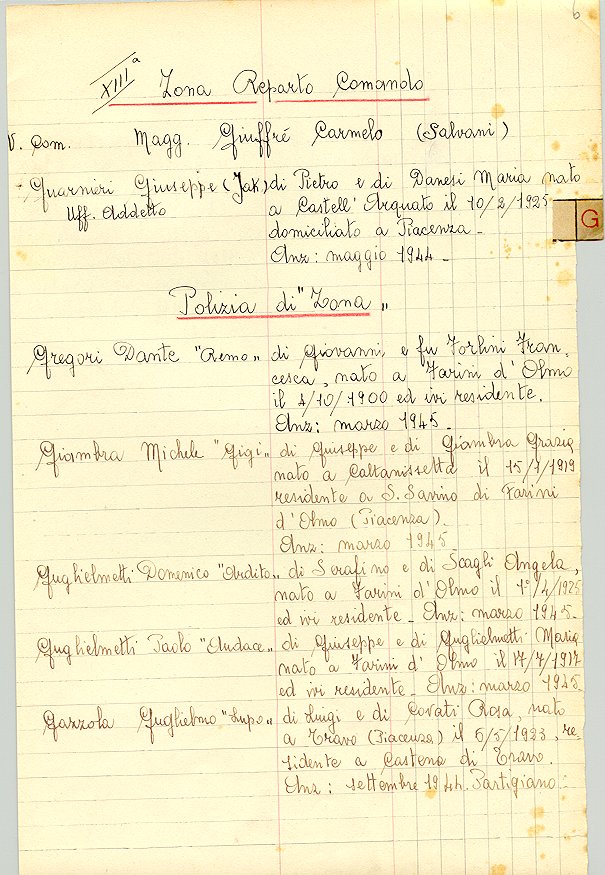 6
XIIIª Zona Reparto Comando
V. Com. Magg. Giuffré Carmelo (Salvani)
Guarnieri Giuseppe (Jak) di Pietro e di Danesi Maria nato
Uff. Addetto a Castell' Arquato il 10/2/1925
domiciliato a Piacenza -
G
Anz: maggio 1944 -
Polizia di "Zona"
Gregori Dante "Remo" di Giovanni e fu Forlini Fran-
cesca, nato a Farini d' Olmo
il 4/10/1900 ed ivi residente.
Anz: marzo 1945 -
Giambra Michele "Gigi" di Giuseppe e di Giambra Grazia
nato a Caltanissetta il 15/1/1919
residente a S. Savino di Farini
d'Olmo (Piacenza).
Anz: marzo 1945
Guglielmetti Domenico "Ardito" di Serafino e di Scagli Angela,
nato a Farini d' Olmo il 1°/4/1925
ed ivi residente - Anz: marzo 1945 -
Guglielmetti Paolo "Audace" di Giuseppe e di Guglielmetti Maria
nato a Farini d' Olmo il 17/7/1917
ed ivi residente - Anz: marzo 1945
Gazzola Guglielmo "Lupo" di Luigi e di Covati Rosa, nato
a Travo (Piacenza) il 6/5/1923, re-
sidente a Castena di Travo.
Anz: settembre 1944. Partigiano: